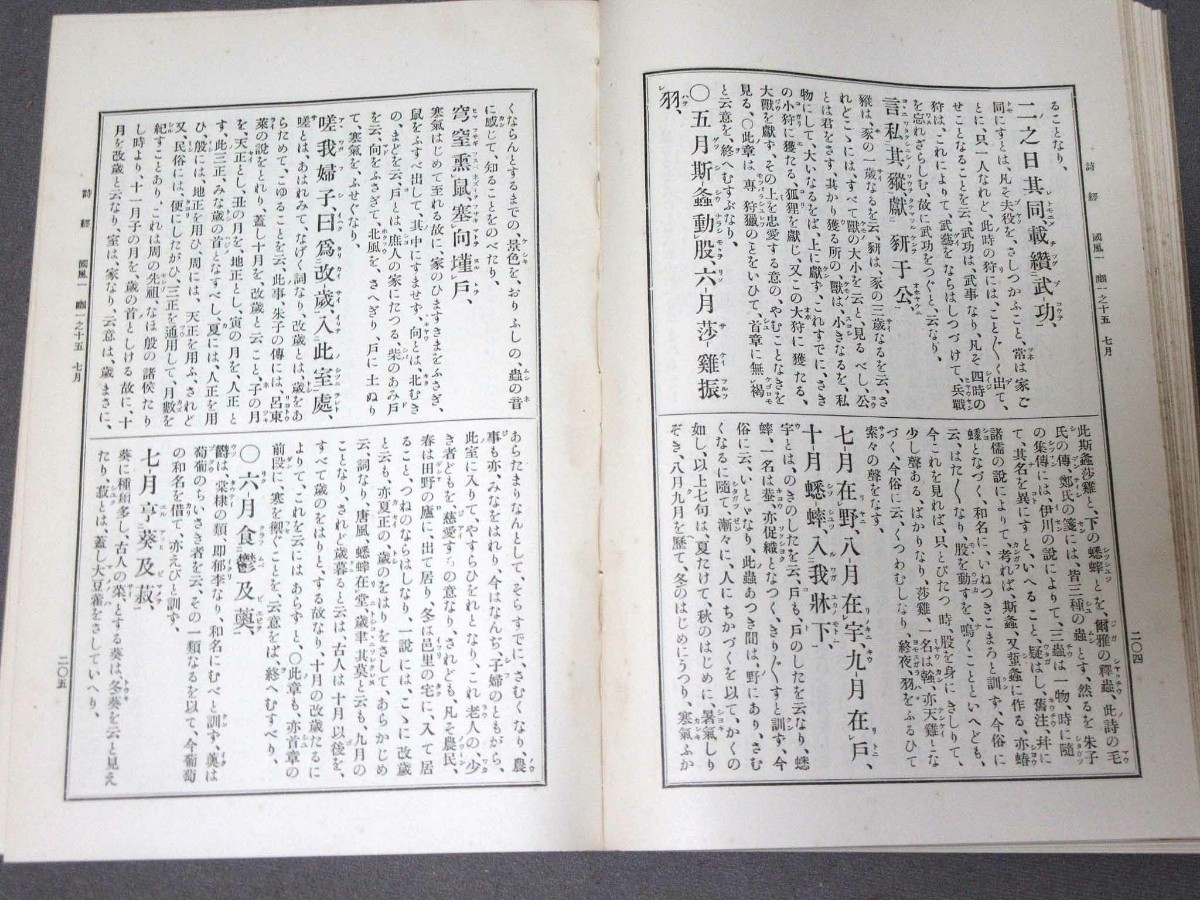 詩經 國風一 豳一之十五 七月
二〇四
ることなり、
二之日其同、載纘武功、
同にすとは、凡そ夫役を、さしつかふこと、常は家ご
とに、只一人なれど、此時の狩には、こと〴〵く出て、
せことなることを云、武功は、武事なり、凡そ四時の
狩は、これによりて、武藝をならはしつづけて、兵戰
を忘れざらしむ、故に武功をつぐと、云なり、
言私其豵、獻豜于公、
豵は、豕の一歳なるを云、豜は、豕の三歳なるを云、さ
れどこゝには、すべて獸の大小を云と、見るべし、公
とは君をさす、其かり獲る所の獸は、小さなるを、私
物にして、大いなるをば、上に獻ず、これすでに、さき
の小狩に獲たる、狐狸を獻じ、又この大狩に獲たる、
大獸を獻ず、その上を忠愛する意の、やむことなきを
見る、〇此章は、專狩獵のことをいひて、首章に無褐
と云意を、終へむすぶなり、
〇五月斯螽動股、六月莎雞振
羽、
此斯螽莎雞と、下の蟋蟀とを、爾雅の釋蟲、此詩の毛
氏の傳、鄭氏の箋には、皆三種の蟲とす、然るを朱子
の集傳には、伊川の說によりて、三蟲は一物、時に隨
て、其名を異にすと、いへること、疑はし、舊注、幷に
諸儒の說によりて、考れば、斯螽、又蜤螽に作る、亦蝽
となづく、和名に、いねつきこまろと訓ず、今俗に
云、はた〳〵なり、股を動すを、鳴くことといへども、
今これを見れば、只とびたつ時、股を身にきしりて、
少し聲ある、ばかりなり、莎雞、一名は螒、亦天雞とな
づく、今俗に云、くつわむしなり、終夜、羽をふるひて
索々の聲をなす、
七月在野、八月在宇、九月在戶、
十月蟋蟀入我牀下、
宇とは、のきのしたを云、戶も、戶のしたを云なり、蟋
蟀、一名は蛬、亦促織となづく、きり〴〵すと訓ず、今
俗に云、いとゞなり、此蟲あつき間は、野にあり、さむ
くなるに隨て、漸々に、人にちかづくを以て、かくの
如し、以上七句は、夏たけて、秋のはじめに、暑氣しり
ぞき、八月九月を歷て、冬のはじめにうつり、寒氣ふか
詩經 國風一 豳一之十五 七月
二〇五
くならんとするまでの、景色を、おりふしの、蟲の音
に感じて、知ることをのべたり、
穹窒熏鼠、塞向墐戶、
寒氣はじめて至れる故に、家のひますきまをふさぎ、
鼠をふすべ出して、其中にすませず、向とは、北むき
の、まどを云、戶とは、庶人の家につくる、柴のあみ戶
を云、向をふさぎて、北風を、さへぎり、戶に土ぬり
て、寒氣を、ふせぐなり、
嗟我婦子、曰爲改歲、入此室處、
嗟とは、あはれみて、なげく、詞なり、改歲とは、歲をあ
らためて、こゆることを云、此事朱子の傳には、呂東
萊の說をとれり、蓋し十月を、改歲と云こと、子の月
を、天正とし、丑の月を地正とし、寅の月を、人正と
す、此三正、みな歲の首となすべし、夏には、人正を用
ひ、殷には、地正を用ひ、周には、天正を用ふ、されど
又、民俗には、便にしたがひ、三正を通用して、月數を
紀すことあり、これは周の先祖、なほ殷の諸侯たり
し時より、十一月子の月を、歲の首としける故に、十
月を改歲と云なり、室は、家なり、云意は、歲まさに、
あらたまりなんとして、そらすでに、さむくなり、農
事も亦、みなをはれり、今はなんぢ、子婦のともがら、
此室に入りて、やすらひをれとなり、これ老人の、少
き者どもを、慈愛するの意なり、されども、凡そ農民、
春は田野の廬に、出て居り、冬は邑里の宅に、入て居
ること、つねのならはしなり、一說には、こゝに改歲
と云、亦夏正の、歲のをはりをさして、あらかじめ
云、詞なり、唐風、蟋蟀在堂、歲聿其莫と云も、九月の
ことなり、されど歲暮と云は、古人は十月以後を、
すべて歲のをはりとする故なり、十月の改歲たるに
よりて、これを云にはあらずと、〇此章も、亦首章の
前段に、寒を禦ぐことを、云意をば、終へむすべり、
〇六月食鬱及薁、
鬱は、棠棣の類、卽郁李なり、和名にむべと訓ず、薁は
葡萄のちいさき者を云、その一類なるを以て、今葡萄
の和名を借て、亦えびと訓ず、
七月亨葵及菽、
葵に種類多し、古人の菜とする葵は、冬葵を云と見え
たり、菽とは、蓋し大豆藿をさしていへり、